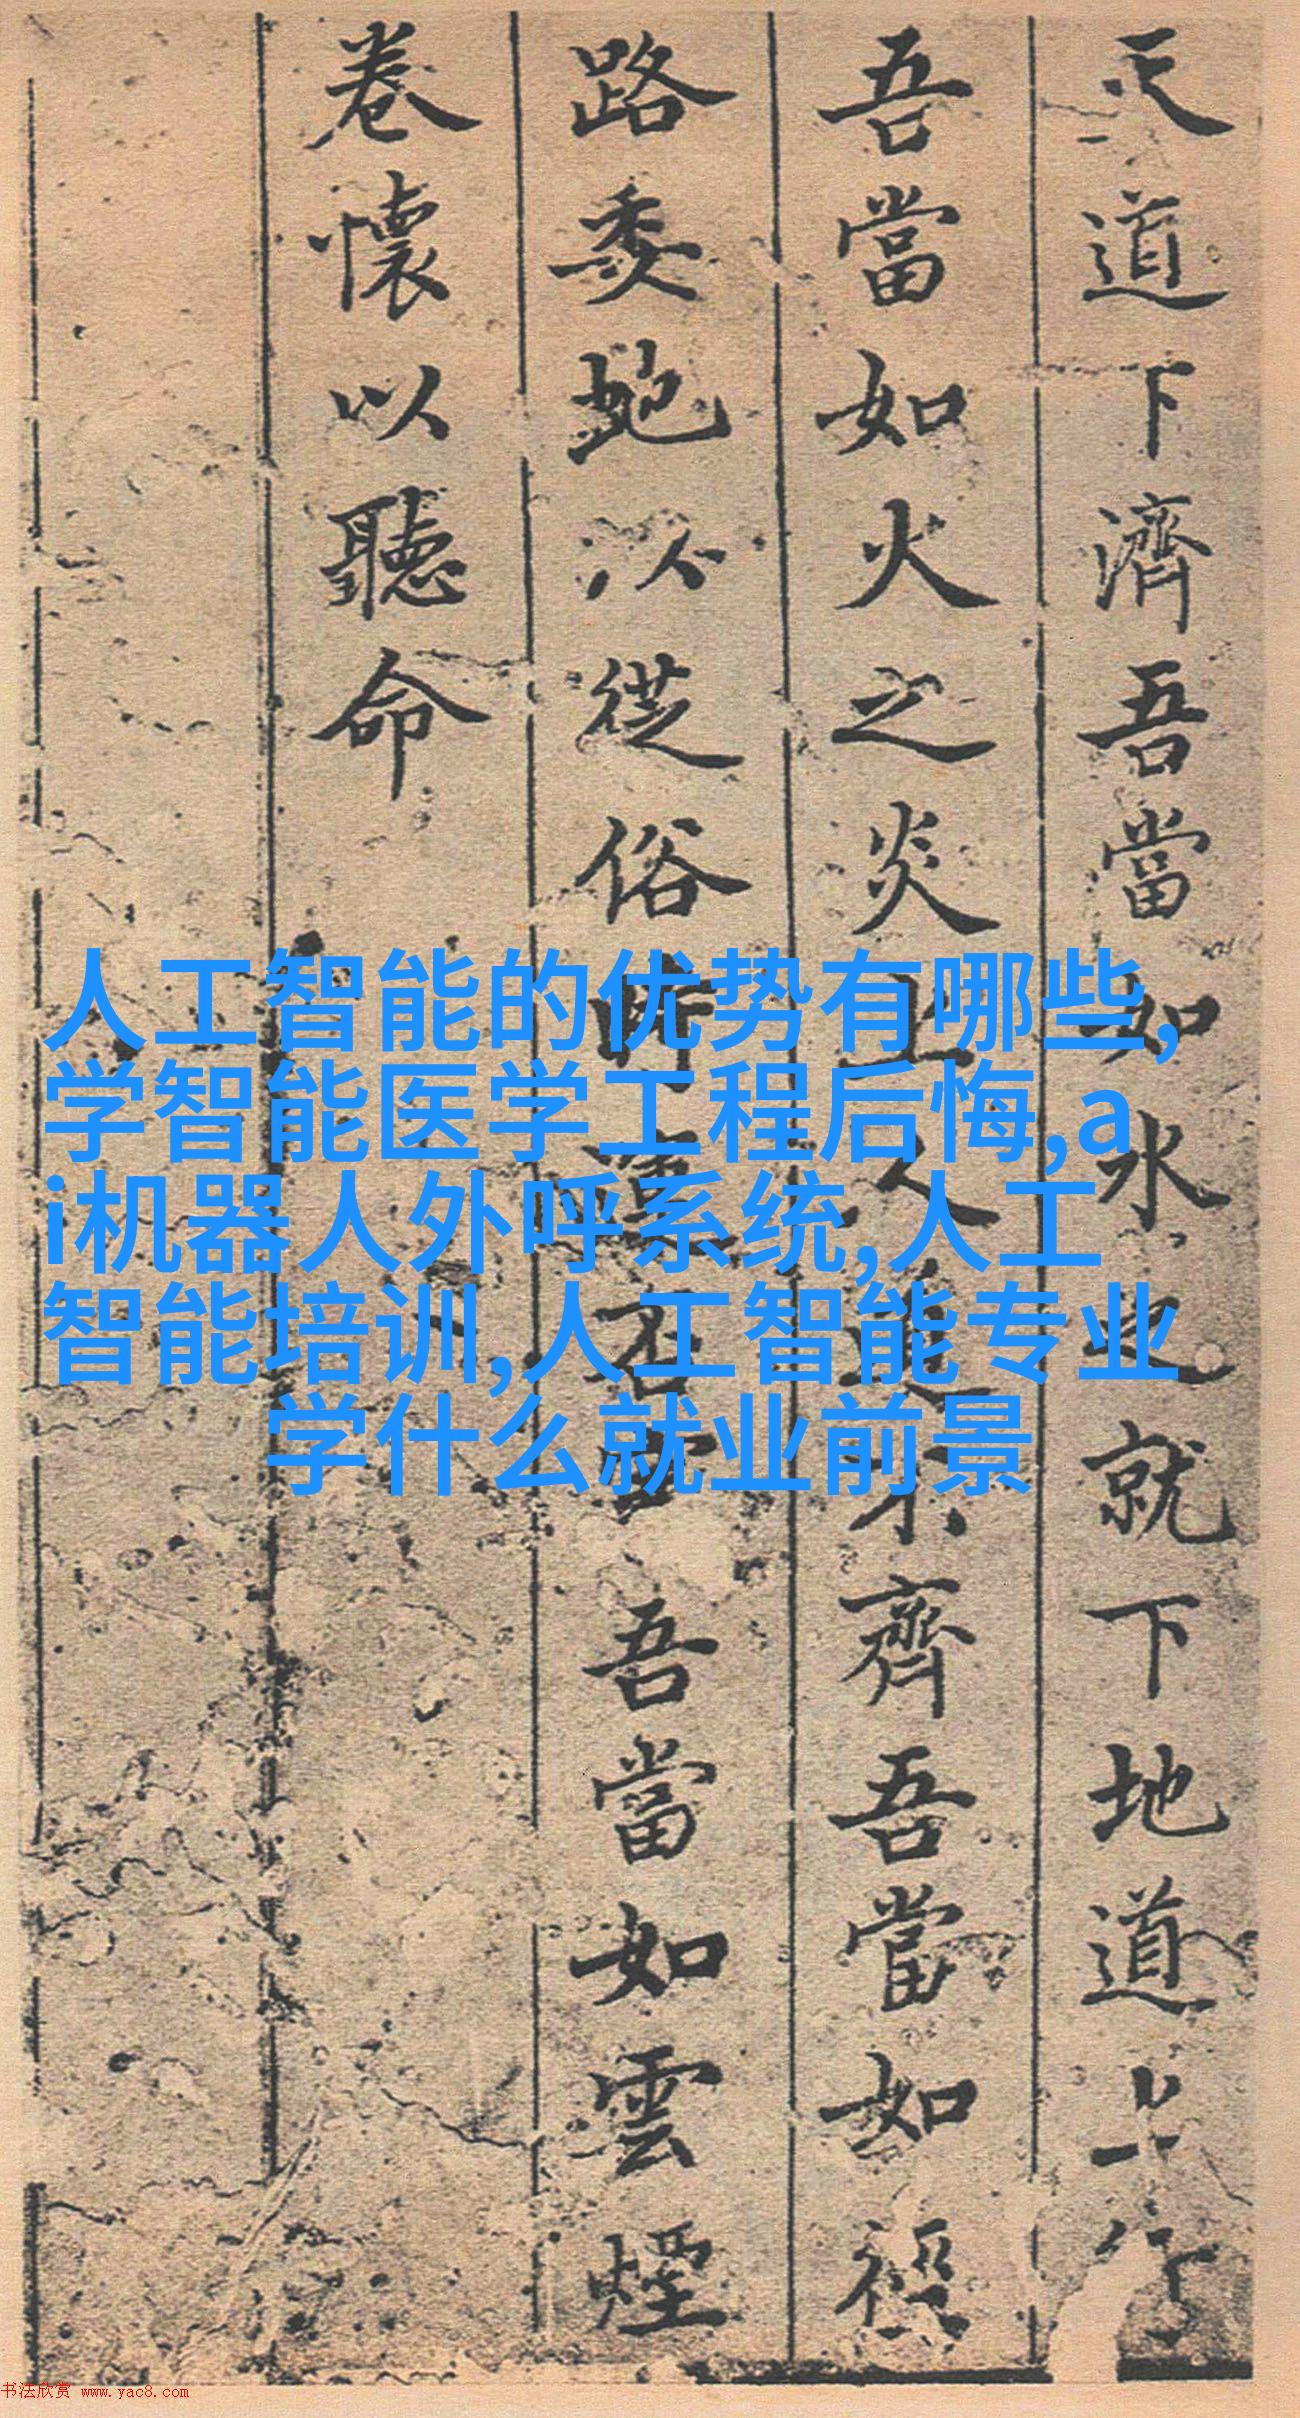 天道下濟吾當如水之就下地道上行
吾當如火之炎上人道不齊吾當如
路委虵以從俗時違不 吾當如雲煙
卷懷以聽命
人工智能的优势有哪些,
学智能医学工程后悔,a
i机器人外呼系统,人工
智能培训,人工智能专业
学什么就业前景
书法欣赏 www.yac8.com